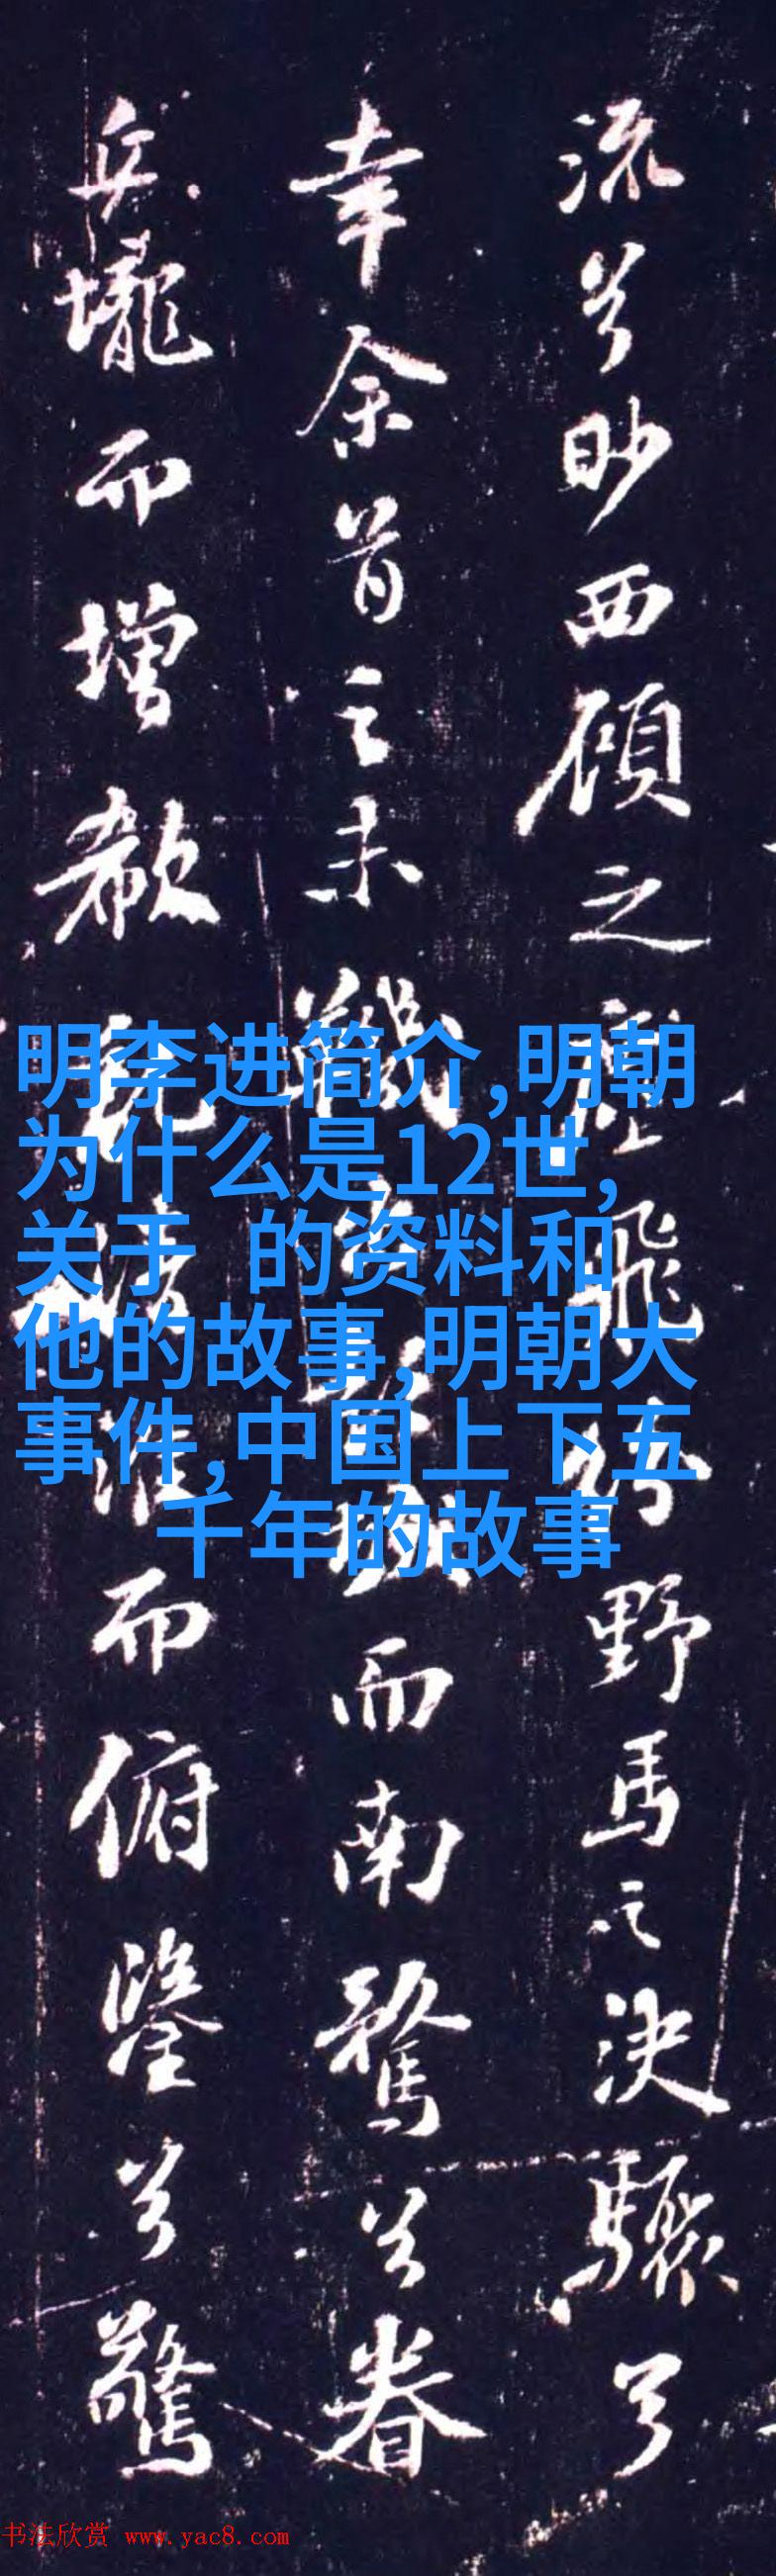 流兮眇西顧之飛野馬之決驟兮
幸余首之未而南騖兮眷
丘壠而增欷清淮而俯鑒兮驚
明李进简介,明朝
为什么是12世,
关于 的资料和
他的故事,明朝大
事件,中国上下五
千年的故事
书法欣赏 www.yac8.com